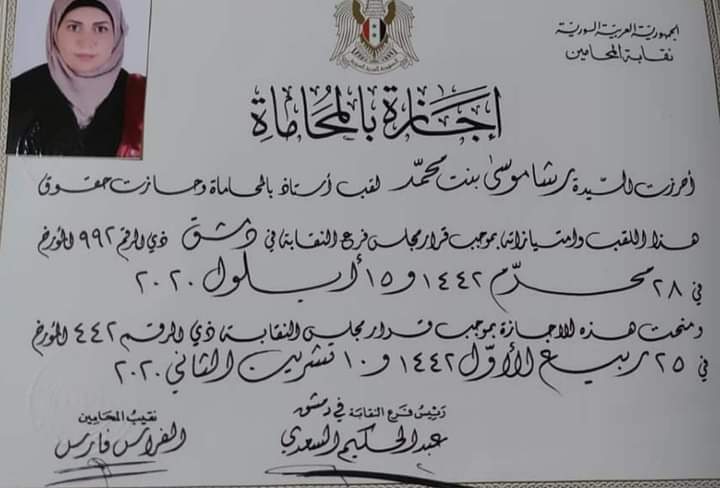 الجمهورية العربية السورية
نقابة المحامين
إجازة بالمحاماة
أحرزت السيدة رشا موسى بنت محمد لقب أستاذ بالمحاماة وحازت حقوق
هذا اللقب وامتيازاته بموجب قرار مجلس فرع النقابة في دمشق ذي الرقم ٩٩٢ المؤرخ
في ٢٨ محرّم ١٤٤٢ و ١٥ أيلول ٢٠٢٠
ومنحت هذه الاجازة بموجب قرار مجلس النقابة ذي الرقم ٤٤٢ المؤرخ
في ٢٥ ربيع الأوّل ١٤٤٢ و ١٠ تشرين الثاني ٢٠٢٠
رئيس فرع النقابة في دمشق
عبد الحكيم السعدي
نقيب المحامين
الفراس فارس